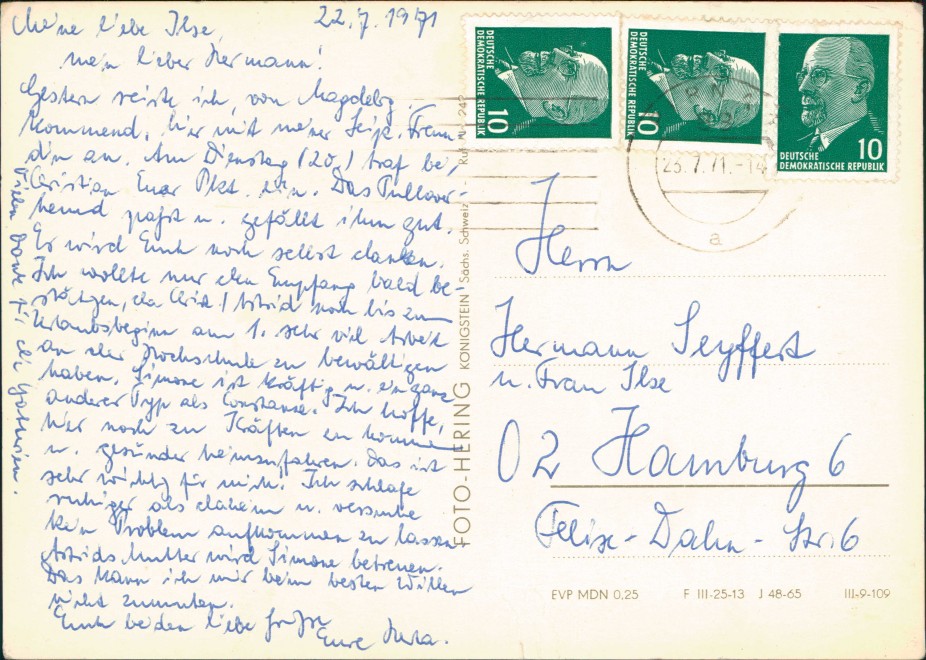 22.7.1971
Meine liebe Ilse,
mein lieber Hermann!
Gestern reiste ich, von Magdebg.
kommend, hier mit meiner Leipz. Freun
din an. Am Dienstag (20.) traf bei
Christian Euer Pkt. ein. Das Pullover-
hemd paßt u. gefällt ihm gut.
Er wird Euch noch selbst danken.
Ich wollte nur den Empfang bald be-
stätigen, da Christ./Astrid noch bis zum
Urlaubsbeginn am 1. sehr viel Arbeit
an der Hochschule zu bewältigen
haben. Simone ist kräftig u. ein ganz
anderer Typ als Constanze. Ich hoffe,
hier noch zu Kräften zu kommen
u. gesünder heimzufahren. Das ist
sehr wichtig für mich. Ich schlafe
ruhiger als daheim u. versuche
kein Problem aufkommen zu lassen.
Astrids Mutter wird Simone betreuen.
Das kann ich mir beim besten Willen
nicht zumuten.
Euch beiden liebe Grüße
Eure Herta.
Vielen Dank für die
FOTO-HERING KÖNIGSTEIN/Sächs. Schweiz
DEUTSCHE
DEMOKRATISCHE REPUBLIK
10
DEUTSCHE
DEMOKRATISCHE REPUBLIK
10
DEUTSCHE
DEMOKRATISCHE REPUBLIK
10
23.7.71.-14
a
Herrn
Hermann Seyffert
u. Frau Ilse
02 Hamburg 6
Felix-Dahn-Str. 6
EVP MDN 0,25 F III-25-13 J 48-65 III-9-109